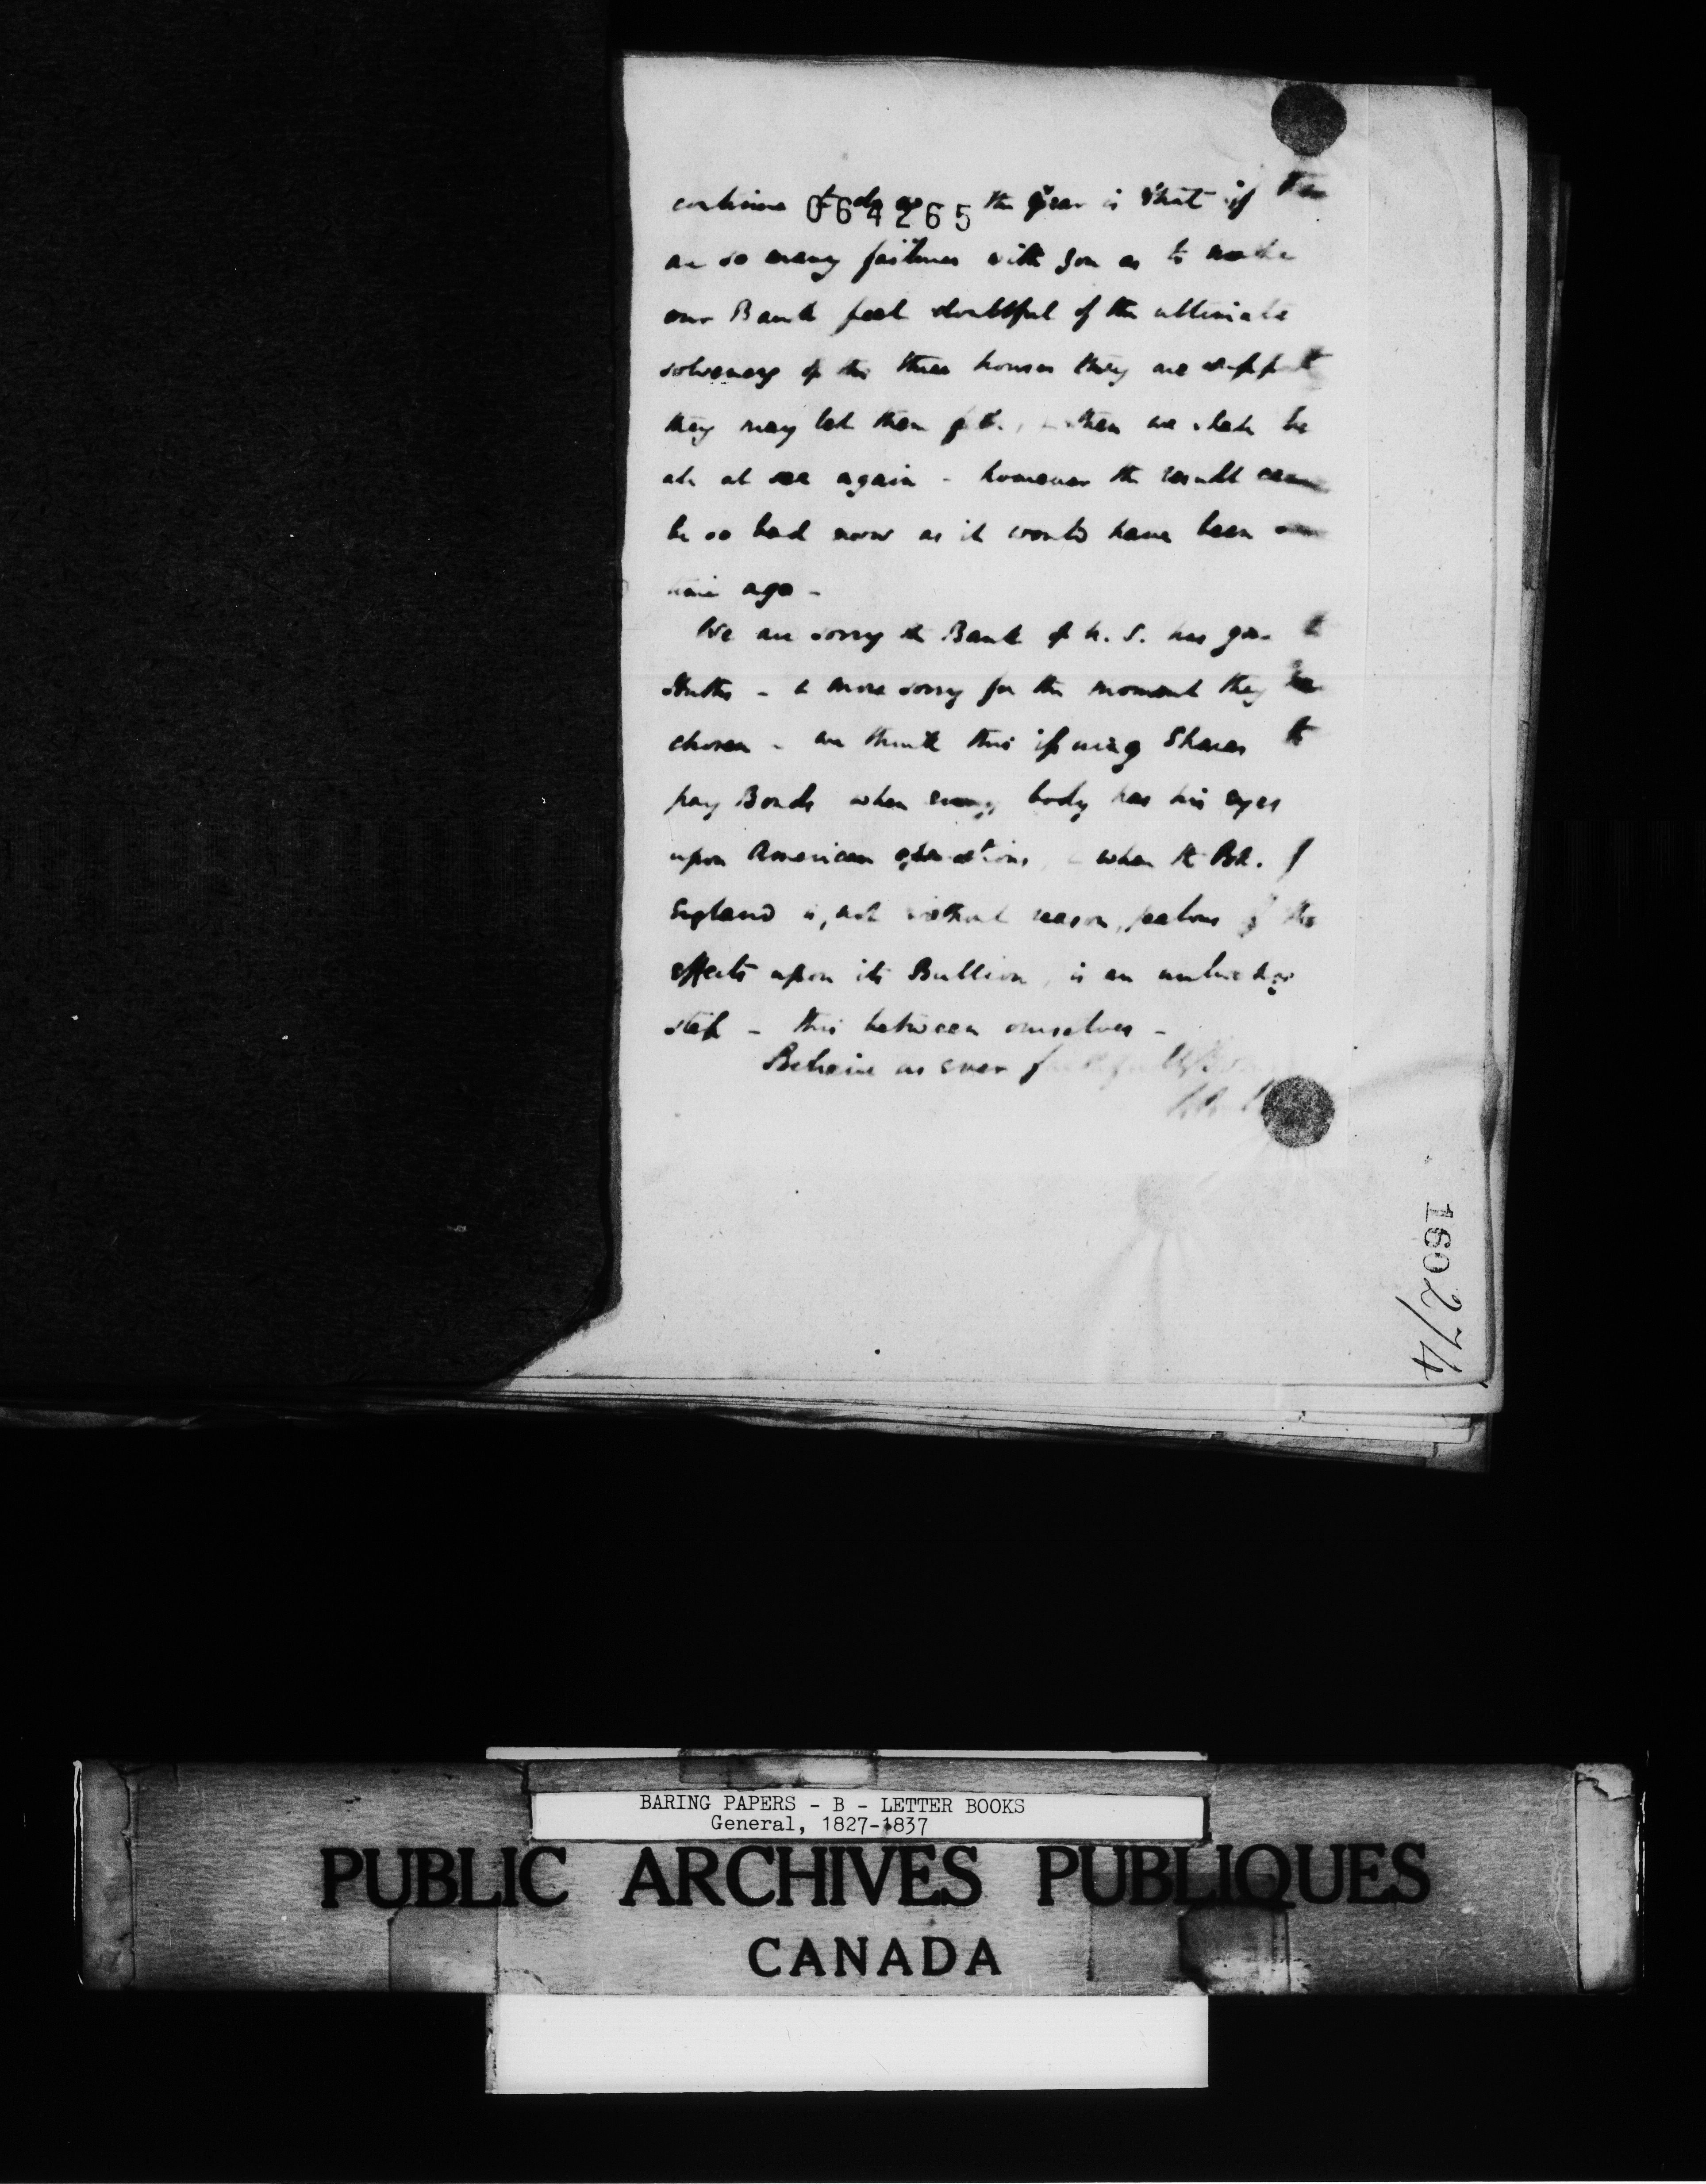 continue to do so the fear is that if
064265
are so many failures with you as to make
our Bank feel doubtful of the ultimate
solvency of the three houses they are
they may let them then we shall be
at sea again - however the result
be so bad now as it would have been
time ago -
We are sorry the Bank of U. S. has gone to
- & more sorry for the moment they have
chosen - we think this issuing Shares to
pay Bonds when every body has his eyes
upon American operations, & when the Bk. of
England is, not without reason, jealous of the
effects upon its Bullion, is an
step - this between ourselves -
Believe us ever
1602/74
BARING PAPERS - B - LETTER BOOKS
General, 1827-1837
PUBLIC ARCHIVES PUBLIQUES
CANADA